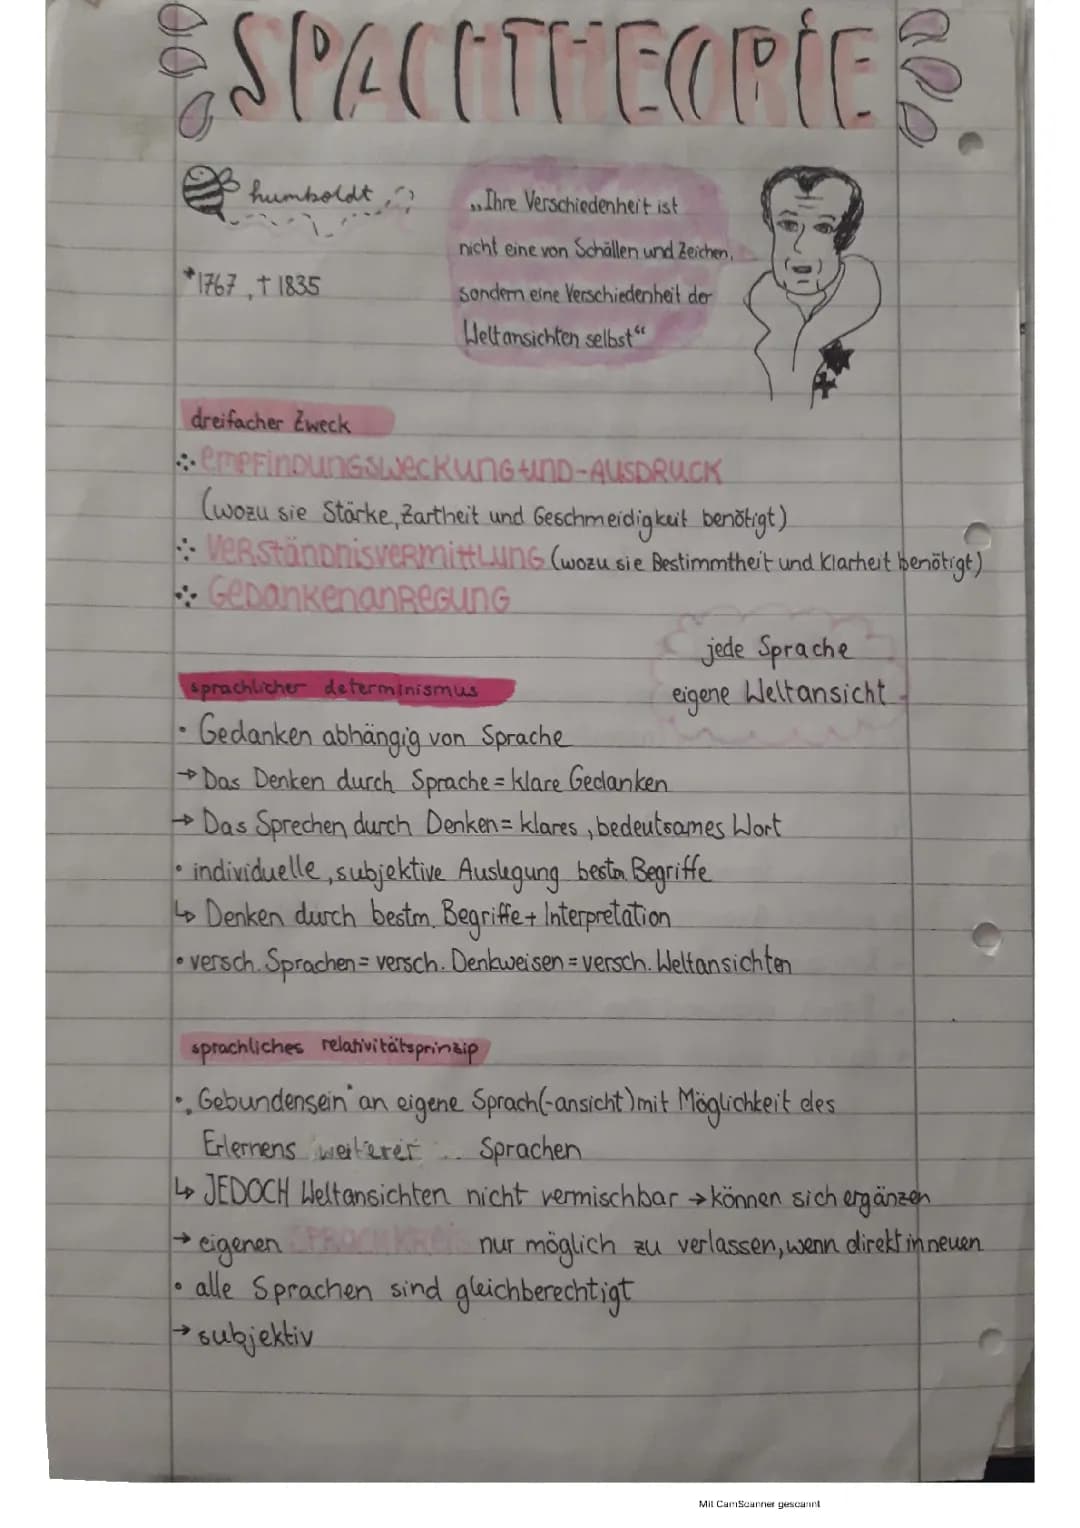 SPACHTHEORIE
humboldt
„Ihre Verschiedenheit ist
nicht eine von Schällen und Zeichen,
sondern eine Verschiedenheit der
Weltansichten selbst“
*1767, † 1835
dreifacher Zweck
EMPFINDUNGSWECKUNG UND -AUSDRUCK
(wozu sie Stärke, Zartheit und Geschmeidigkeit benötigt)
VERSTÄNDNISVERMITTLUNG (wozu sie Bestimmtheit und Klarheit benötigt)
GEDANKENANREGUNG
jede Sprache
eigene Weltansicht
sprachlicher determinismus
• Gedanken abhängig von Sprache
→ Das Denken durch Sprache = klare Gedanken
→ Das Sprechen durch Denken = klares, bedeutsames Wort
• individuelle, subjektive Auslegung bestm. Begriffe
↳ Denken durch bestm. Begriffe + Interpretation
• versch. Sprachen = versch. Denkweisen = versch. Weltansichten
sprachliches relativitätsprinzip
• „Gebundensein" an eigene Sprach(-ansicht) mit Möglichkeit des
Erlernens weiterer Sprachen
↳ JEDOCH Weltansichten nicht vermischbar → können sich ergänzen
→ eigenen SPRACHKREIS nur möglich zu verlassen, wenn direkt in neuen
• alle Sprachen sind gleichberechtigt
→ subjektiv
Mit CamScanner gescannt